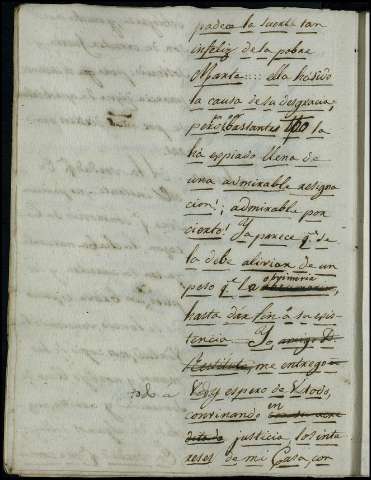 padece la suerte tan
infeliz de la pobre
Marta:::: ella ha sido
la causa de su desgracia;
pero bastante tpo la
há espiado llena de
una admirable resigna
cion!; admirable por
cierto! Ya parece q.e se
la debe aliviar de un
peso q.e la oprimiria,
hasta dar fin á su exis-
tencia. Yo, amigo D.
me entrego
á Vd y espero de Vd todo,
convinando en
justicia, los inte
reses de mi Casa, con